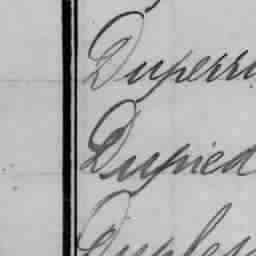 Duperr
Dupied
Duples